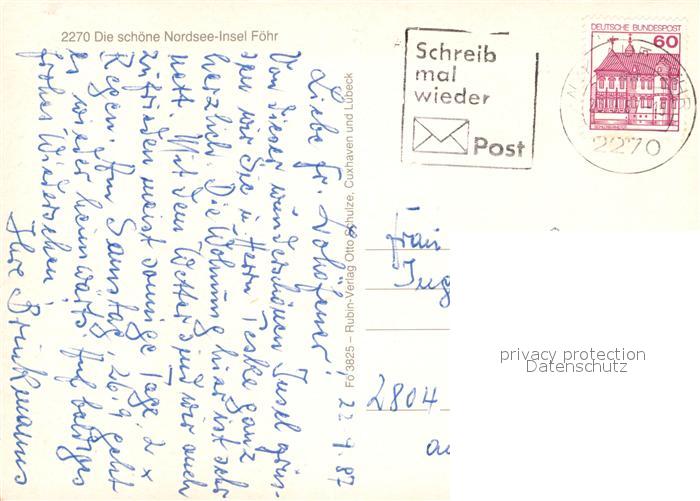 2270 Die schöne Nordsee-Insel Föhr
Schreib
mal
wieder
Post
DEUTSCHE BUNDESPOST
60
2270
22.9.87
Liebe Fr. Lohöfener!
Von dieser wunderschönen Insel grüs-
sen wir Sie u. Herrn Teske ganz
herzlich. Die Wohnung hier ist sehr
nett. Mit dem Wetter sind wir auch
zufrieden meist sonnige Tage, 2 x
Regen. Am Samstag, 26.9. geht
es wieder heimwärts. Auf baldiges
frohes Wiedersehen!
Ihre Brinkmanns
Fö 3825 – Rubin-Verlag Otto Schulze, Cuxhaven und Lübeck
Frau
Ing
2804
privacy protection
Datenschutz